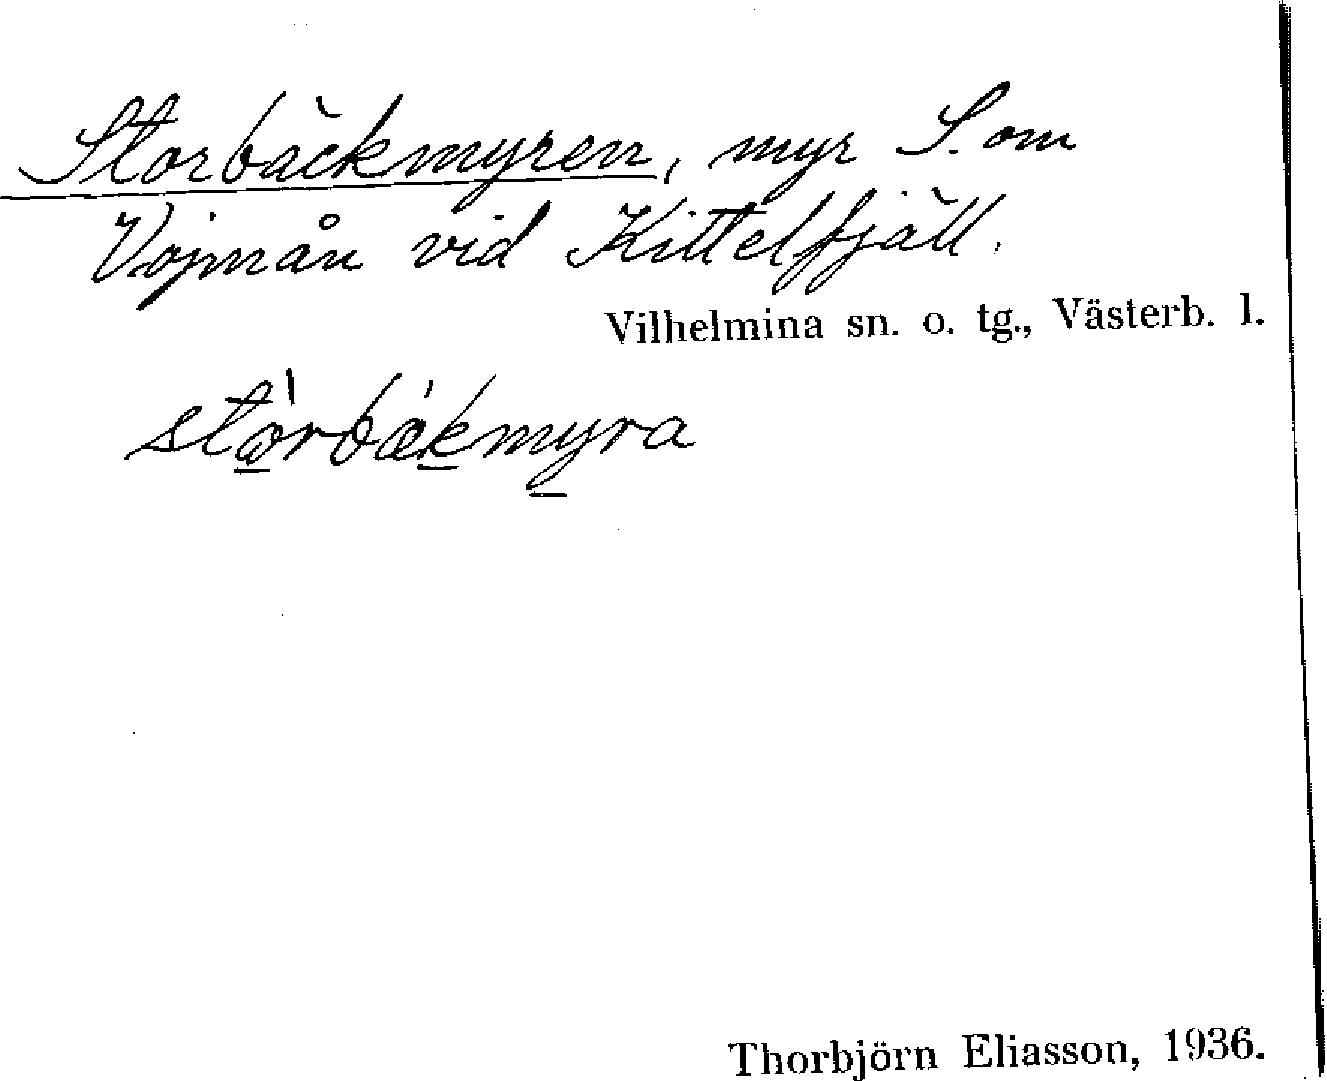 Storbäckmyren, myr S. om
Vojmån vid Kittelfjäll.
Vilhelmina sn. o. tg., Västerb. l.
stò̱rbǽḵmy̱ra
Thorbjörn Eliasson, 1936.